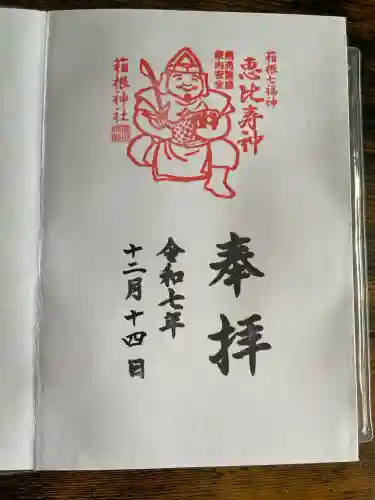 箱根七福神
恵比寿神
商売繁盛
家内安全
箱根神社
奉拝
令和七年
十二月十四日